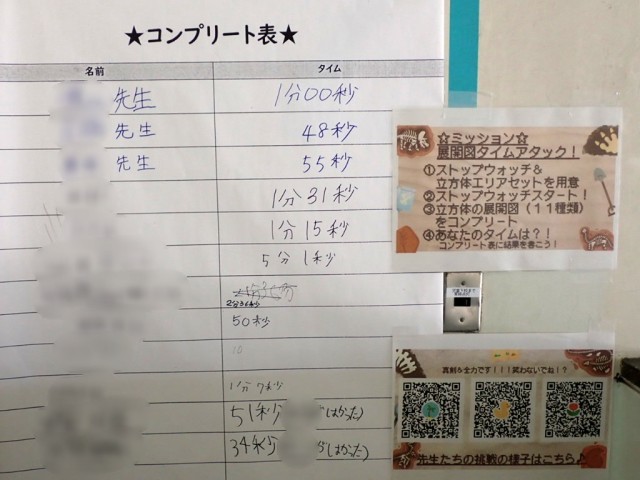 ★コンプリート表★
名前 タイム
先生 1分00秒
先生 48秒
先生 55秒
1分31秒
1分15秒
5分1秒
2分36秒
50秒
10
1分7秒
51秒 がはかった)
34秒 がはかった)
☆ミッション☆
展開図タイムアタック！
①ストップウォッチ＆
立方体エリアセットを用意
②ストップウォッチスタート！
③立方体の展開図（11種類）
をコンプリート
④あなたのタイムは？！
コンプリート表に結果を書こう！
真剣＆全力です！！！笑わないでね！？
先生たちの挑戦の様子はこちら♪